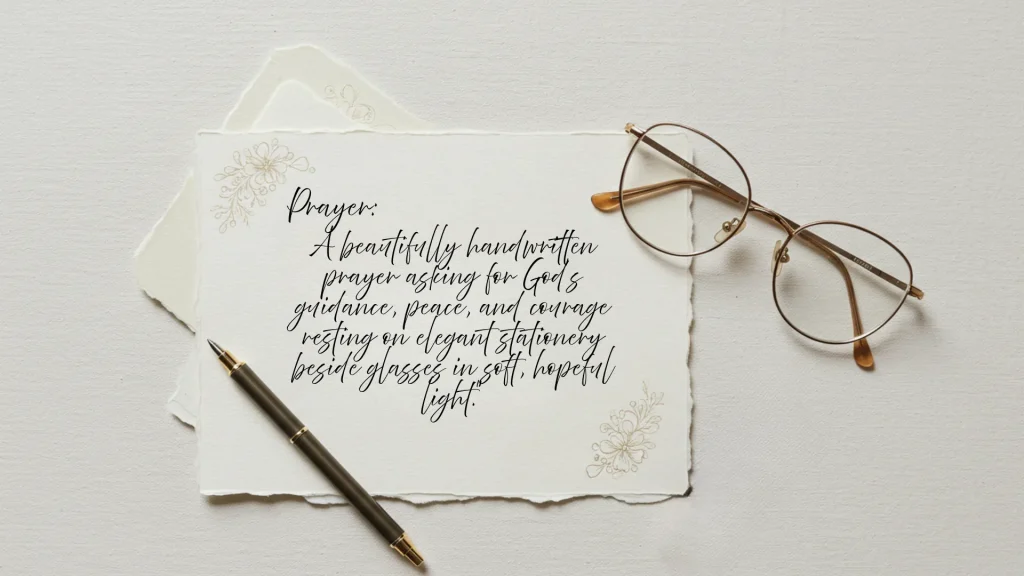 Prayer:
A beautifully handwritten
prayer asking for God's
guidance, peace, and courage
resting on elegant stationery
beside glasses in soft, hopeful
light."